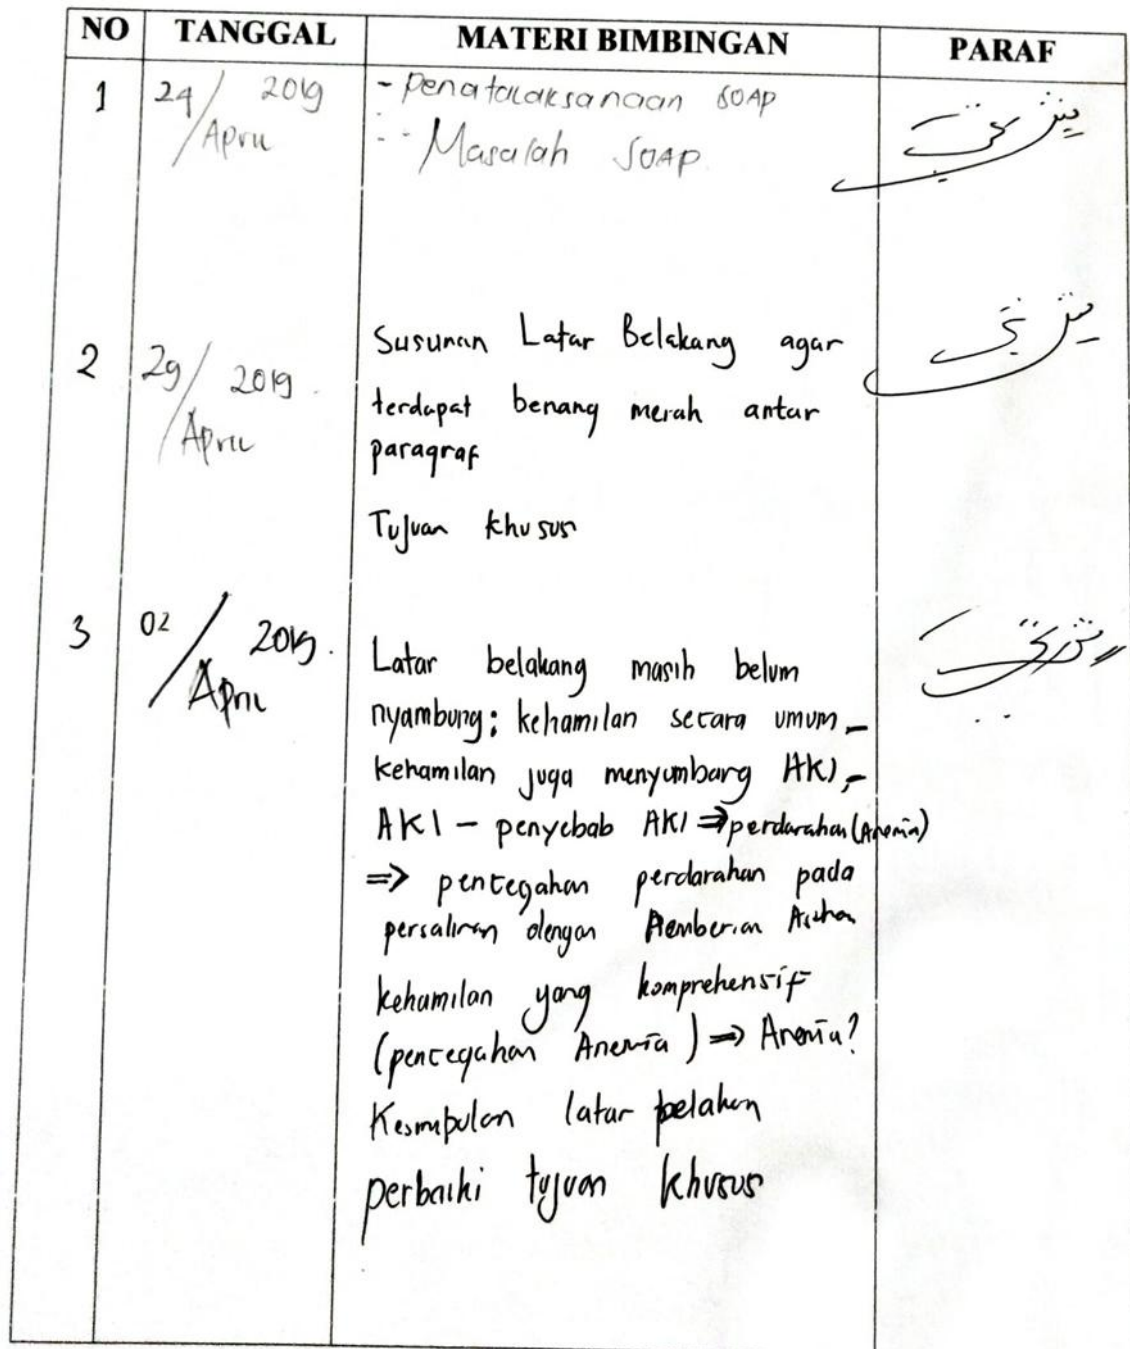 NO TANGGAL MATERI BIMBINGAN PARAF
1 24/April 2019 - Penatalaksanaan SOAP
- Masalah SOAP
2 29/April 2019. Susunan Latar Belakang agar
terdapat benang merah antar
paragraf
Tujuan khusus
3 02/April 2019. Latar belakang masih belum
nyambung; kehamilan secara umum –
kehamilan juga menyumbang AKI, –
AKI – penyebab AKI ⇒ perdarahan (Anemia)
⇒ pencegahan perdarahan pada
persalinan dengan Pemberian Asuhan
kehamilan yang komprehensif
(pencegahan Anemia) ⇒ Anemia?
Kesimpulan latar belakan
perbaiki tujuan khusus